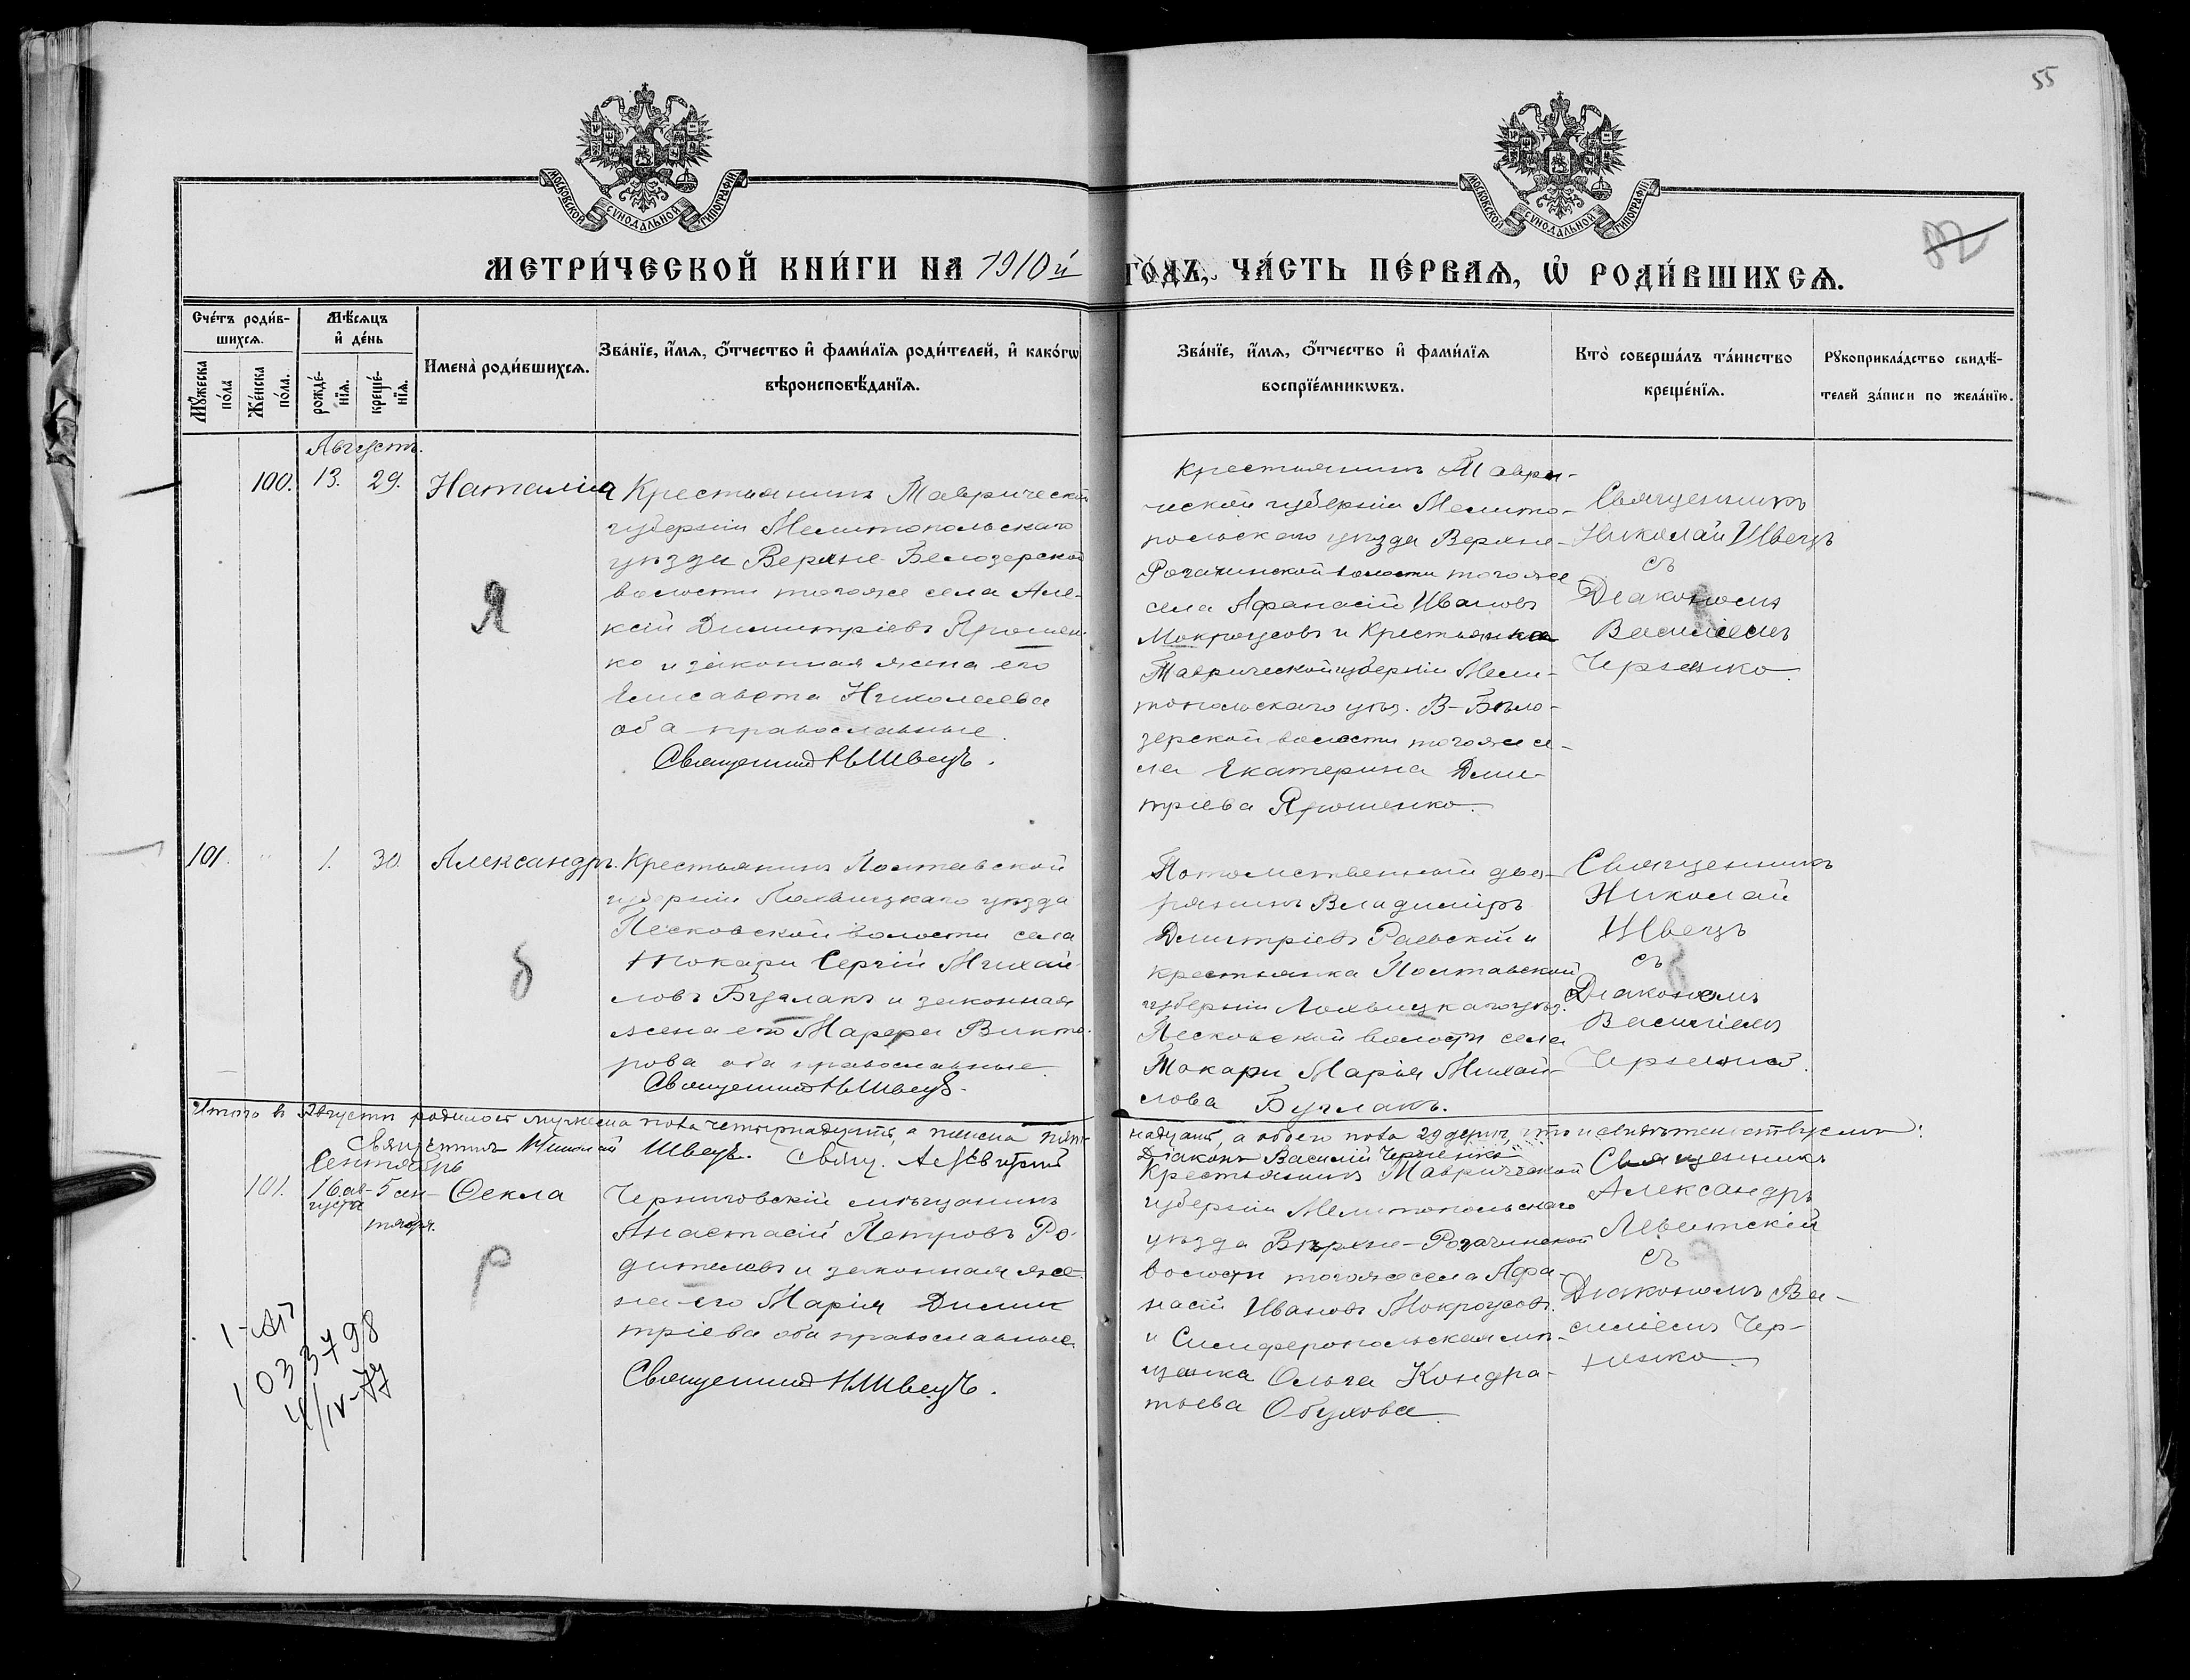 55
82
МОСКОВСКОЙ СѴНОДАЛЬНОЙ ТИПОГРАФІИ
МОСКОВСКОЙ СѴНОДАЛЬНОЙ ТИПОГРАФІИ
МЕТРИ́ЧЕСКОЙ КНИ́ГИ НА 1910й
ГО́ДЪ, ЧА́СТЬ ПЕ́РВАѦ, Ѡ РОДИ́ВШИХСѦ.
Сче́тъ роди́в-
шихсѧ.
Мꙋ́жеска по́ла
Же́нска по́ла.
Мѣ́сѧцъ
и҆ де́нь
рожде́-
нїѧ.
креще́-
нїѧ.
Имена̀ роди́вшихсѧ.
Зва́нїе, и҆́мѧ, ѻ҆́тчество и҆ фами́лїѧ роди́телей, и҆ како́гѡ
вѣроисповѣ́данїѧ.
Зва́нїе, и҆́мѧ, ѻ҆́тчество и҆ фами́лїѧ
воспрїе́мникѡвъ.
Кто̀ соверша́лъ та́инство
креще́нїѧ.
Рꙋкоприкла́дство свидѣ́-
телей за́писи по жела́нїю.
Августъ.
100.
13.
29.
Наталія
Крестьянинъ Таврической
губерніи Мелитопольскаго
уѣзда Верхне-Белозерской
волости тогоже села Але-
ксій Димитріевъ Ярошен-
ко и законная жена его
Елисавета Николаева
оба православные.
Священникъ Н. Швецъ.
Я
Крестьянинъ Таври-
ческой губерніи Мелито-
польскаго уѣзда Верхне-
Рогачинской волости тогоже
села Афанасій Ивановъ
Мокроусовъ и Крестьянка
Таврической губерніи Мели-
топольскаго уѣз. В-Бѣло-
зерской волости тогоже се-
ла Екатерина Дми-
тріева Ярошенко.
Священникъ
Николай Швецъ
съ
Діакономъ
Василіемъ
Черненко.
101.
"
1.
30
Александръ.
Крестьянинъ Полтавской
губерніи Лохвицкаго уѣзда
Песковской волости села
Токари Сергій Михай-
ловъ Бурлакъ и законная
жена его Марфа Викто-
рова оба православные.
Священникъ Н. Швецъ.
б
Потомственный дво-
рянинъ Владиміръ
Дмитріевъ Раевскій и
крестьянка Полтавской
губерніи Лохвицкаго уѣз.
Песковской волости села
Токари Марія Михай-
лова Бурлакъ.
Священникъ
Николай
Швецъ
съ
Діакономъ
Василіемъ
Черненко.
Итого въ Августѣ родилось мужеска пола четырнадцать, а женска пят-
надцать, а обоего пола 29 душъ, что и свидѣтельствуемъ:
Священникъ Николай Швецъ. Свящ. А. Левитскій
Діаконъ Василій Черненко
Сентябрь
101.
16 ав-
густа
5 сен-
тября.
Ѳекла
Черниговскій мѣщанинъ
Анастасій Петровъ Ро-
дителевъ и законная же-
на его Марія Дими-
тріева оба православные.
Священникъ Н. Швецъ.
р
Крестьянинъ Таврической
губерніи Мелитопольскаго
уѣзда Верхне-Рогачинской
волости тогоже села Афа-
насій Ивановъ Мокроусовъ.
и Симферопольская мѣ-
щанка Ольга Кондра-
тьева Обухова.
Священникъ
Александръ
Левитскій
съ
Діакономъ Ва-
силіемъ Чер-
ненко.
1033798
4/IV-77